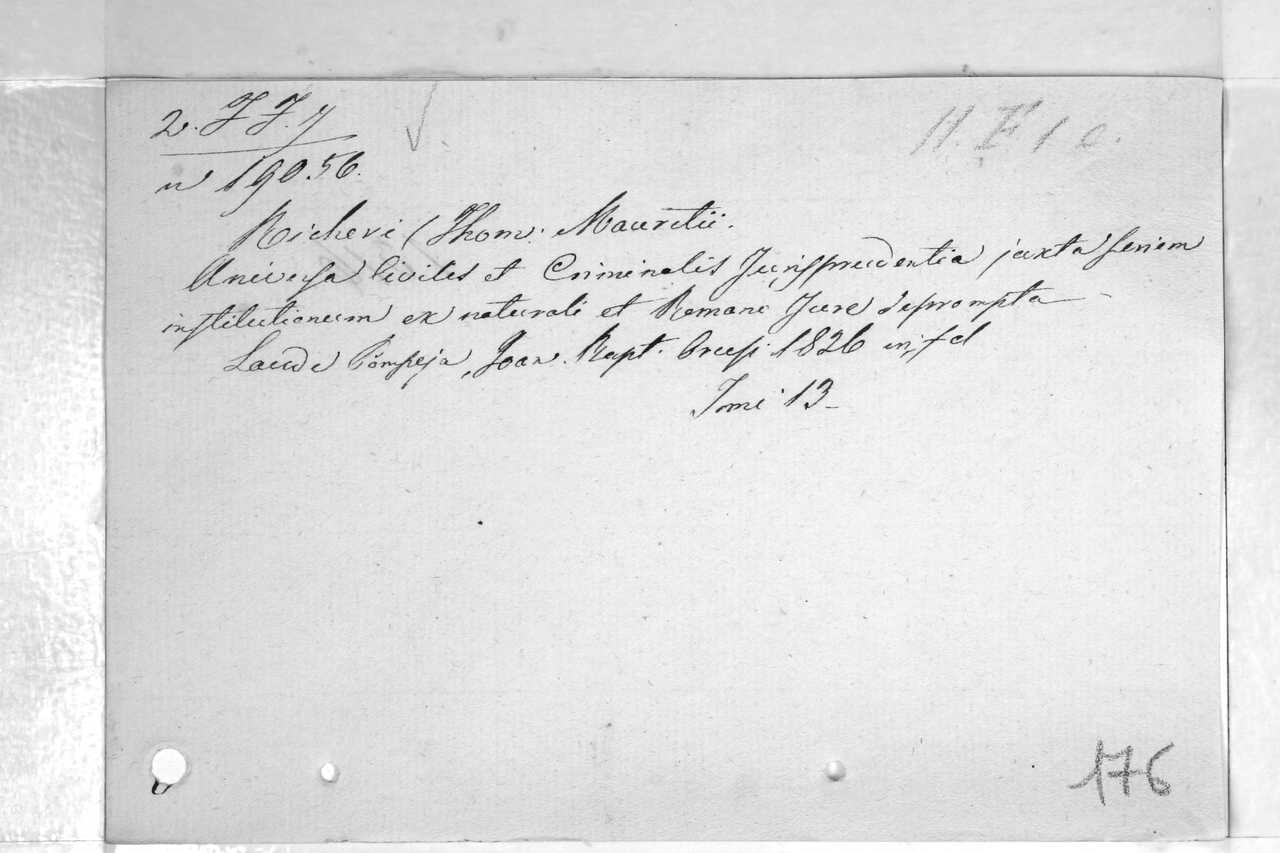 2. F F. 7
H. F 1 c.
n 19056.
Richeri (Thom. Mauritii.
Universa Civilis et Criminalis Jurisprudentia juxta seriem
institutionum ex naturali et Romano Jure deprompta
Laude Pompeja, Joan. Bapt. Orcesi 1826 in fol
Tomi 13
176